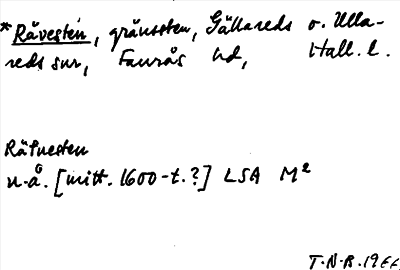 *Rävesten, gränssten, Gällareds o. Ulla-
reds snr, Faurås hd, Hall. l.
Räfuesten
n.å. [mitt. 1600-t.?] LSA M²
T.N.B. 1966